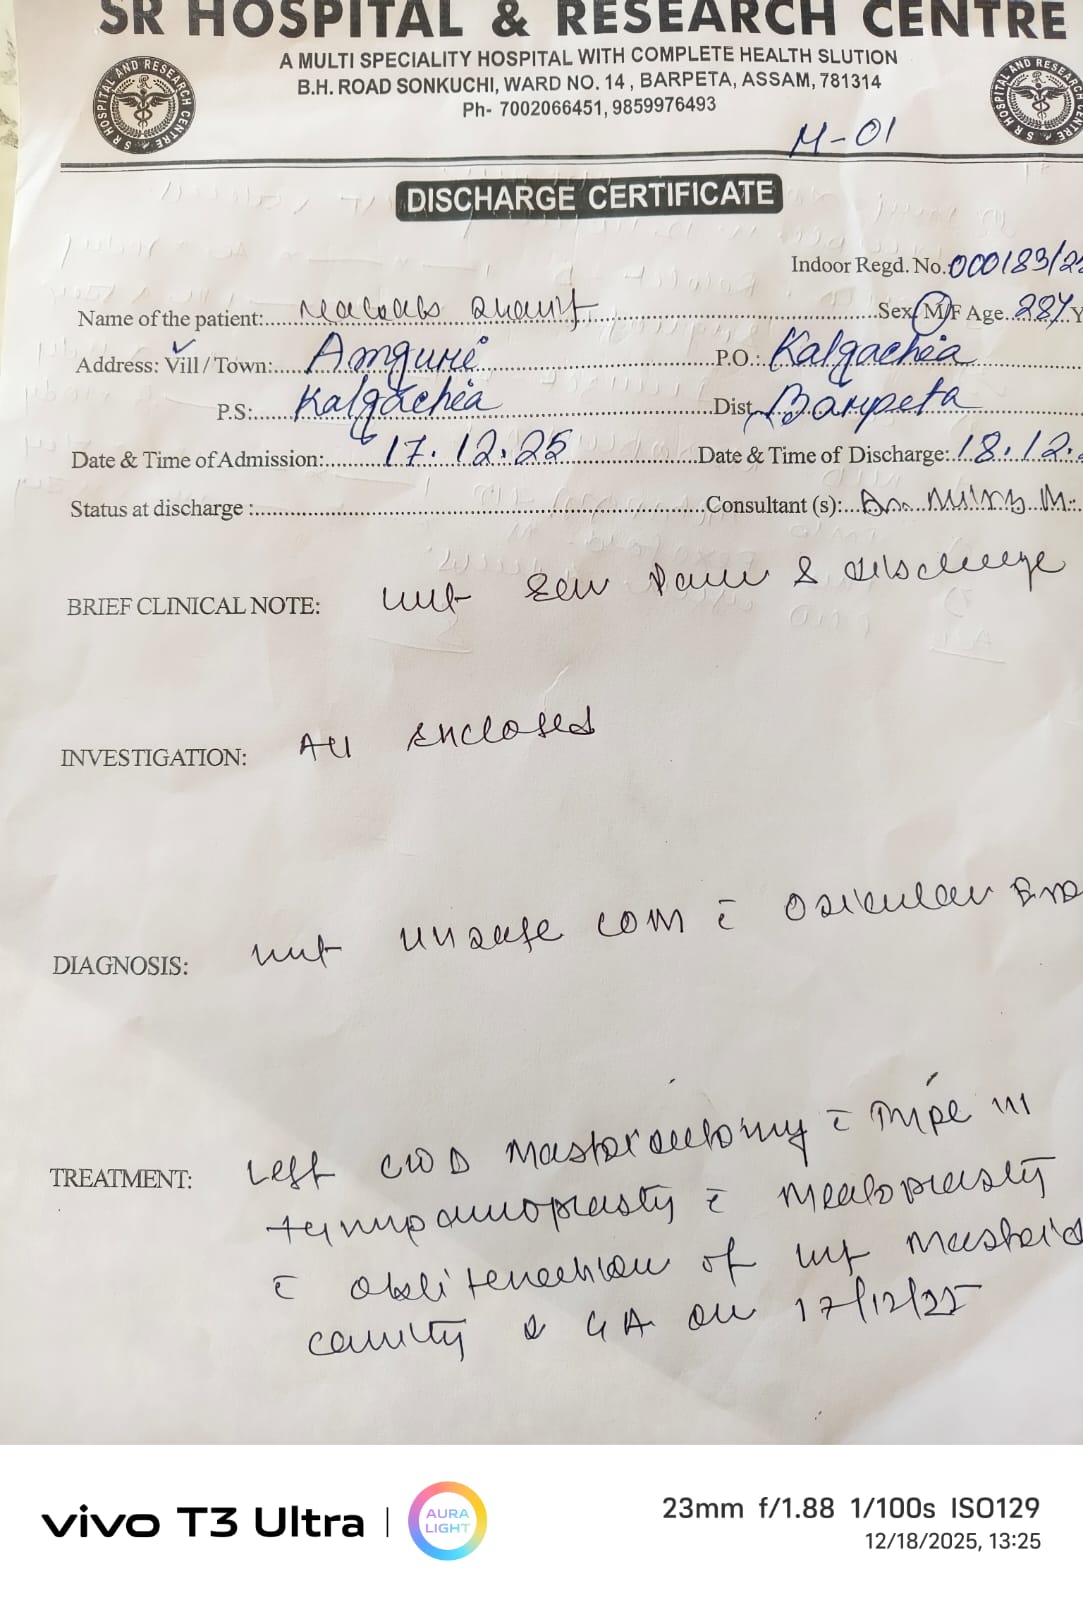 SR HOSPITAL & RESEARCH CENTRE
A MULTI SPECIALITY HOSPITAL WITH COMPLETE HEALTH SLUTION
B.H. ROAD SONKUCHI, WARD NO. 14, BARPETA, ASSAM, 781314
Ph- 7002066451, 9859976493
M-01
DISCHARGE CERTIFICATE
Indoor Regd. No. 000183/2
Name of the patient: Sex M/F Age 28Y Y
Address: Vill / Town: Amguri P.O.: Kalgachia
P.S: Kalgachia Dist Barpeta
Date & Time of Admission: 17.12.25 Date & Time of Discharge: 18.12.
Status at discharge : Consultant (s): Dr. M.
BRIEF CLINICAL NOTE: & discharge
INVESTIGATION: All enclosed
DIAGNOSIS: unsafe COM c̄ Osicular
TREATMENT: Left CWD Mastoidectomy c̄ Type III
tympanoplasty c̄ Meatoplasty
c̄ obliteration of Mastoid
cavity GA on 17/12/25
vivo T3 Ultra | AURA LIGHT
23mm f/1.88 1/100s ISO129
12/18/2025, 13:25